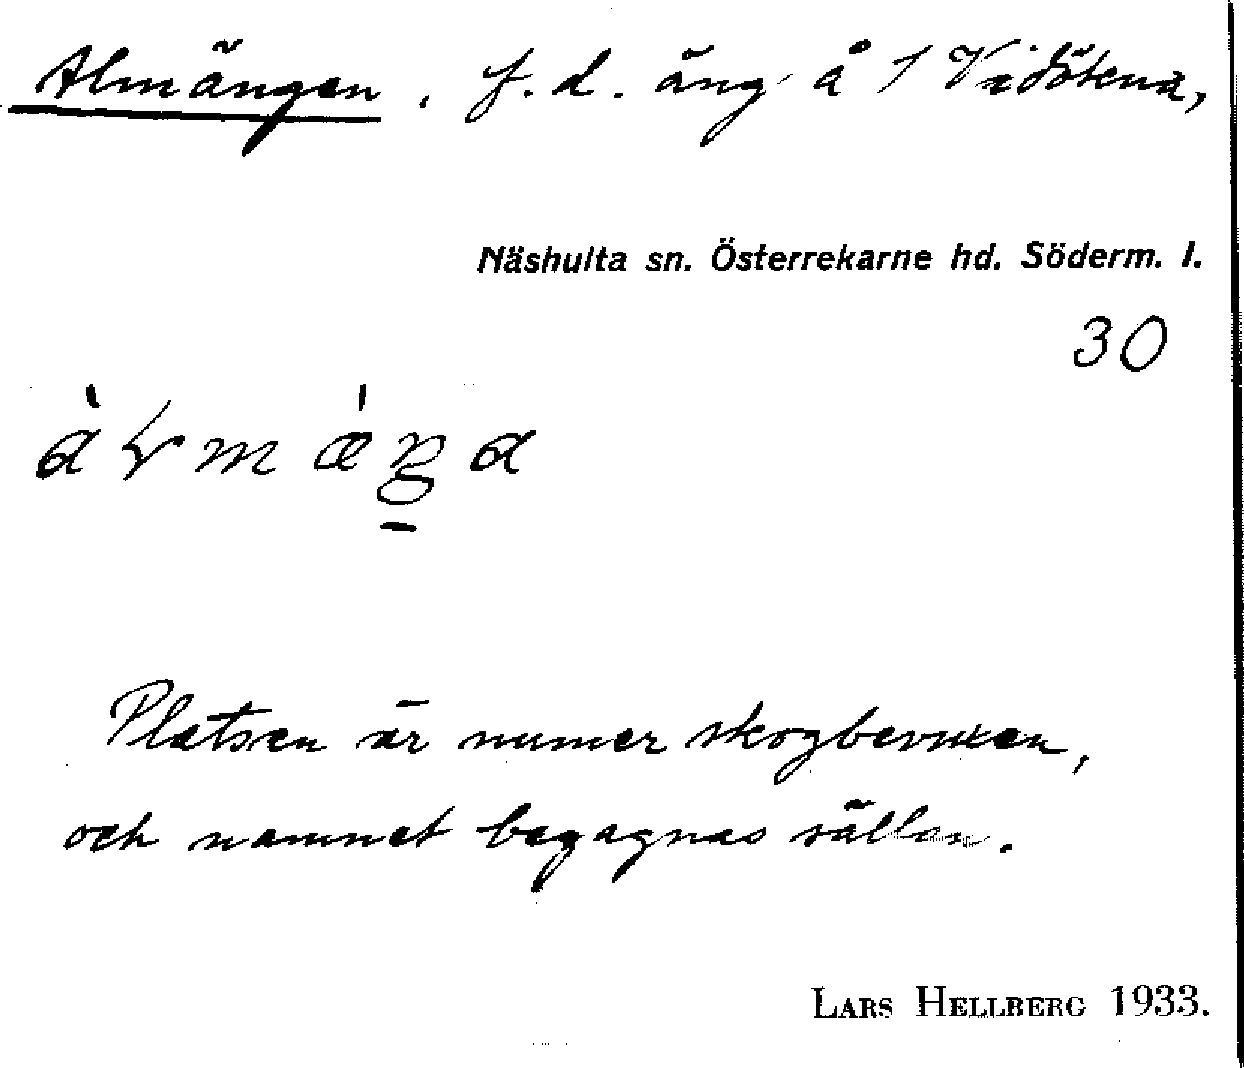 Almängen, f.d. äng å 1 Vidökna,
Näshulta sn. Österrekarne hd. Söderm. l.
30
Platsen är numer skogbevuxen,
och namnet begagnas sällan.
LARS HELLBERG 1933.